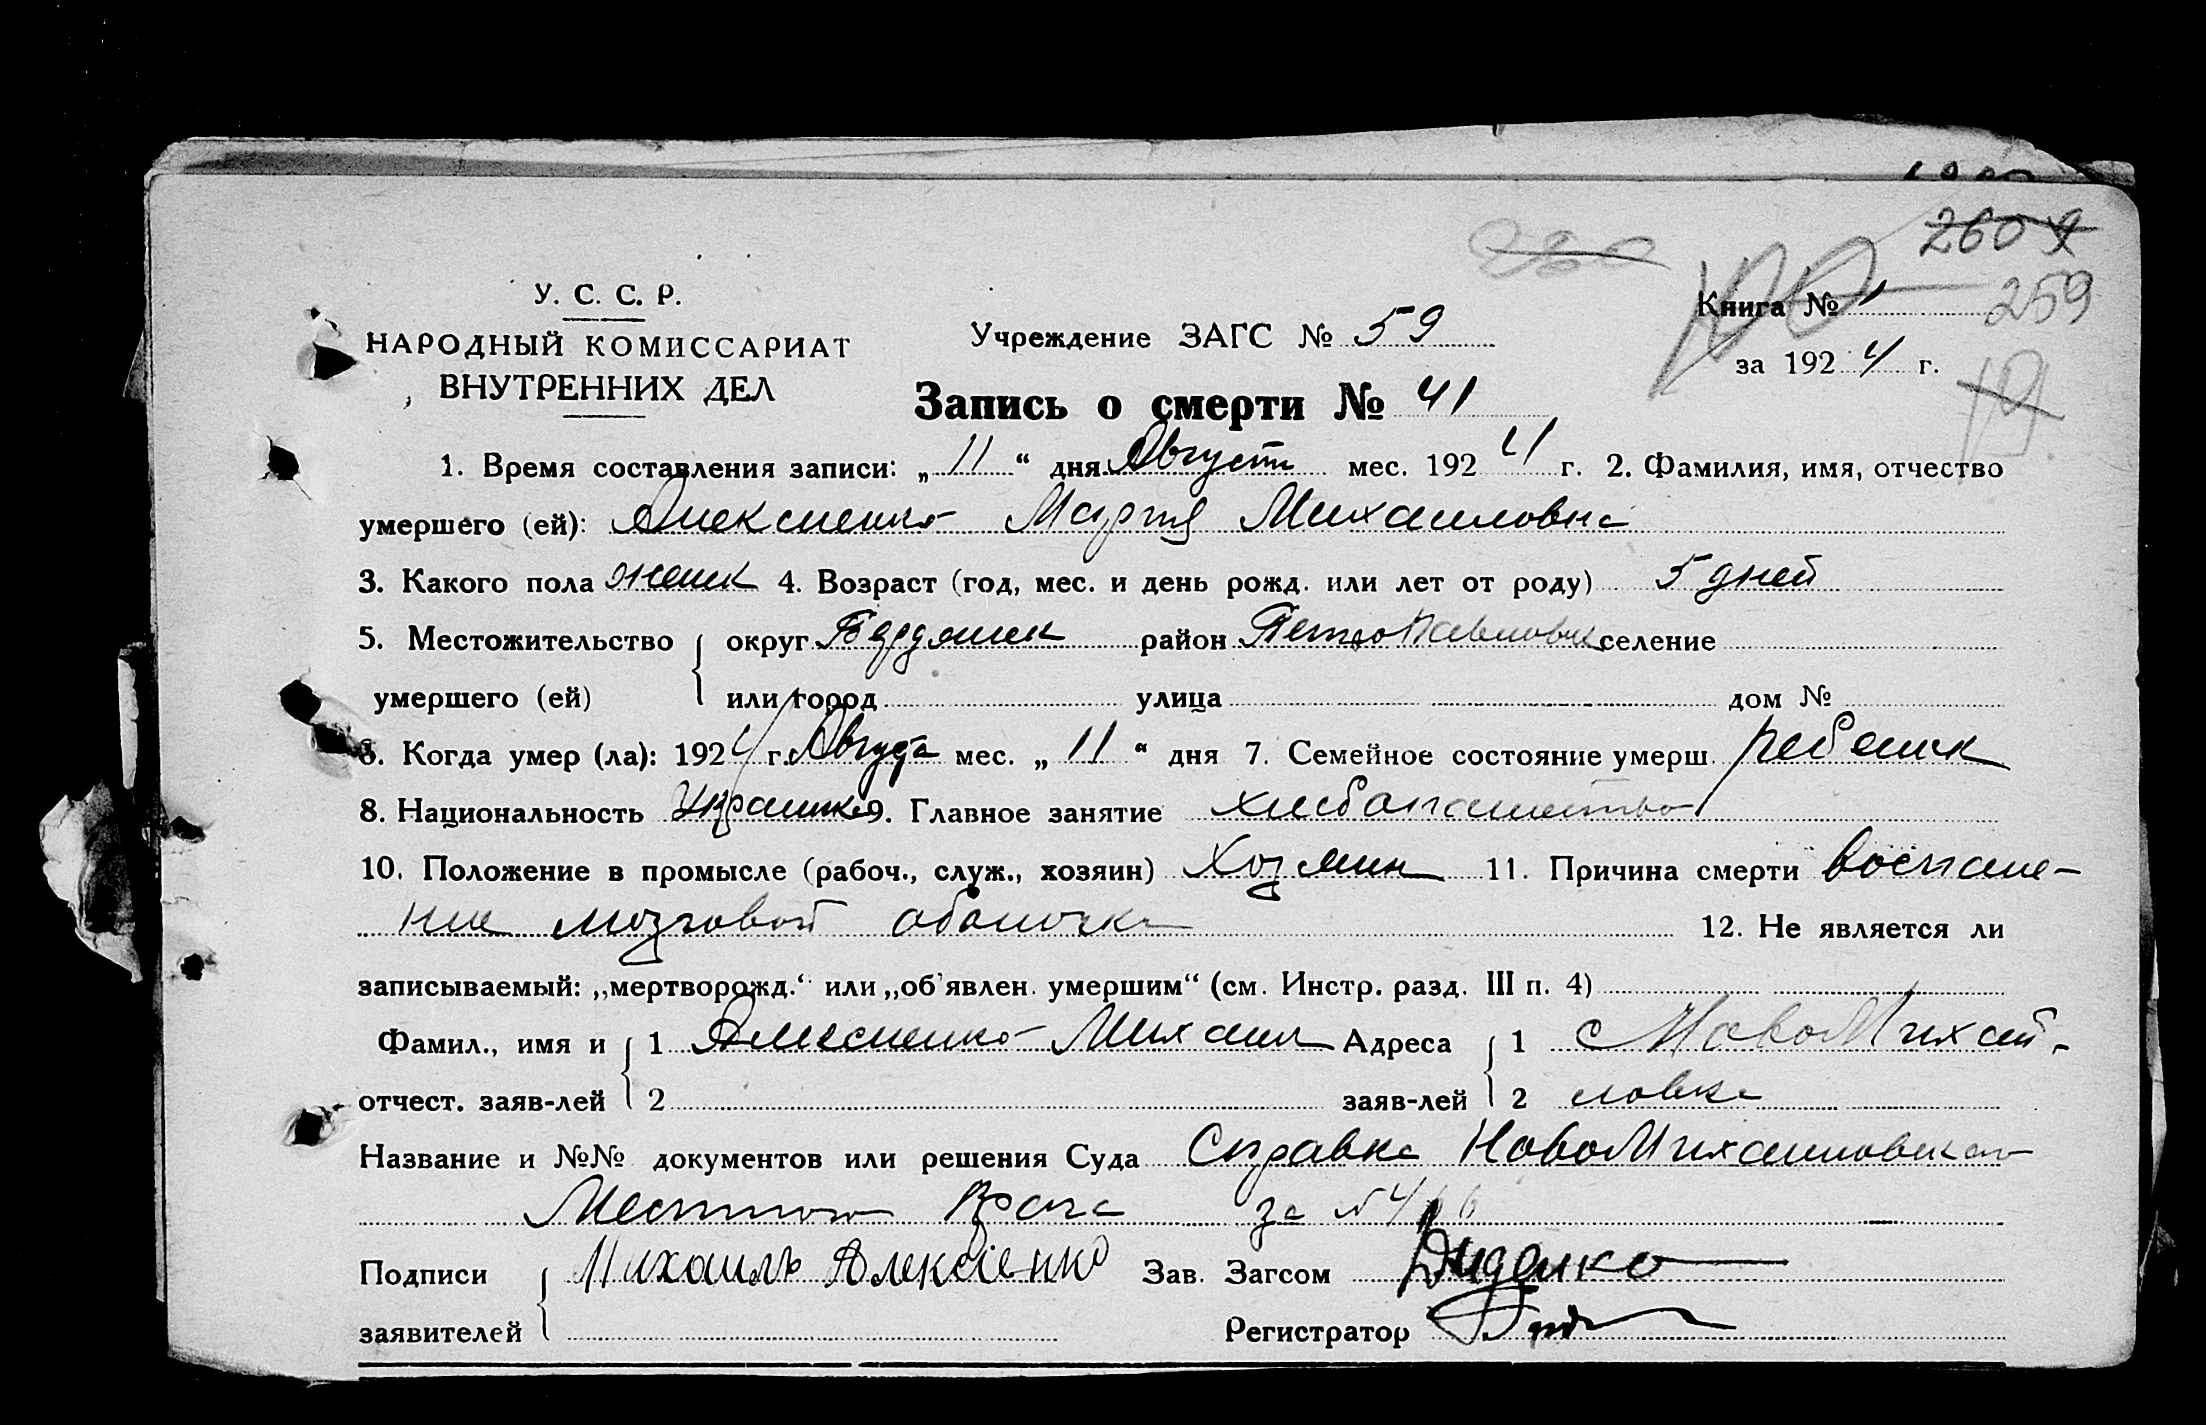 260 9
У. С. С. Р.
НАРОДНЫЙ КОМИССАРИАТ
ВНУТРЕННИХ ДЕЛ
Учреждение ЗАГС № 59
Книга № 1
259
за 1924 г.
Запись о смерти № 41
1. Время составления записи: „11“ дня Август мес. 1924 г. 2. Фамилия, имя, отчество
умершего (ей): Алексиенко Мария Михаиловна
3. Какого пола женск 4. Возраст (год, мес. и день рожд. или лет от роду) 5 дней
5. Местожительство округ Бердянск район ПетроПавловск селение
умершего (ей) или город улица дом №
6. Когда умер (ла): 1924 г. Августа мес. „11“ дня 7. Семейное состояние умерш. ребенок
8. Национальность Украинка 9. Главное занятие хлебопашество
10. Положение в промысле (рабоч., служ., хозяин) Хозяин 11. Причина смерти воспале-
ние мозговой оболочки
12. Не является ли
записываемый: „мертворожд.“ или „об'явлен. умершим“ (см. Инстр. разд. III п. 4)
Фамил., имя и 1 Алексиенко Михаил Адреса 1 с НовоМихай-
отчест. заяв-лей 2 заяв-лей 2 ловка
Название и №№ документов или решения Суда Справка НовоМихаиловского
Местного Врача за №
Подписи Михаилъ Алексіенко Зав. Загсом Диденко
заявителей Регистратор